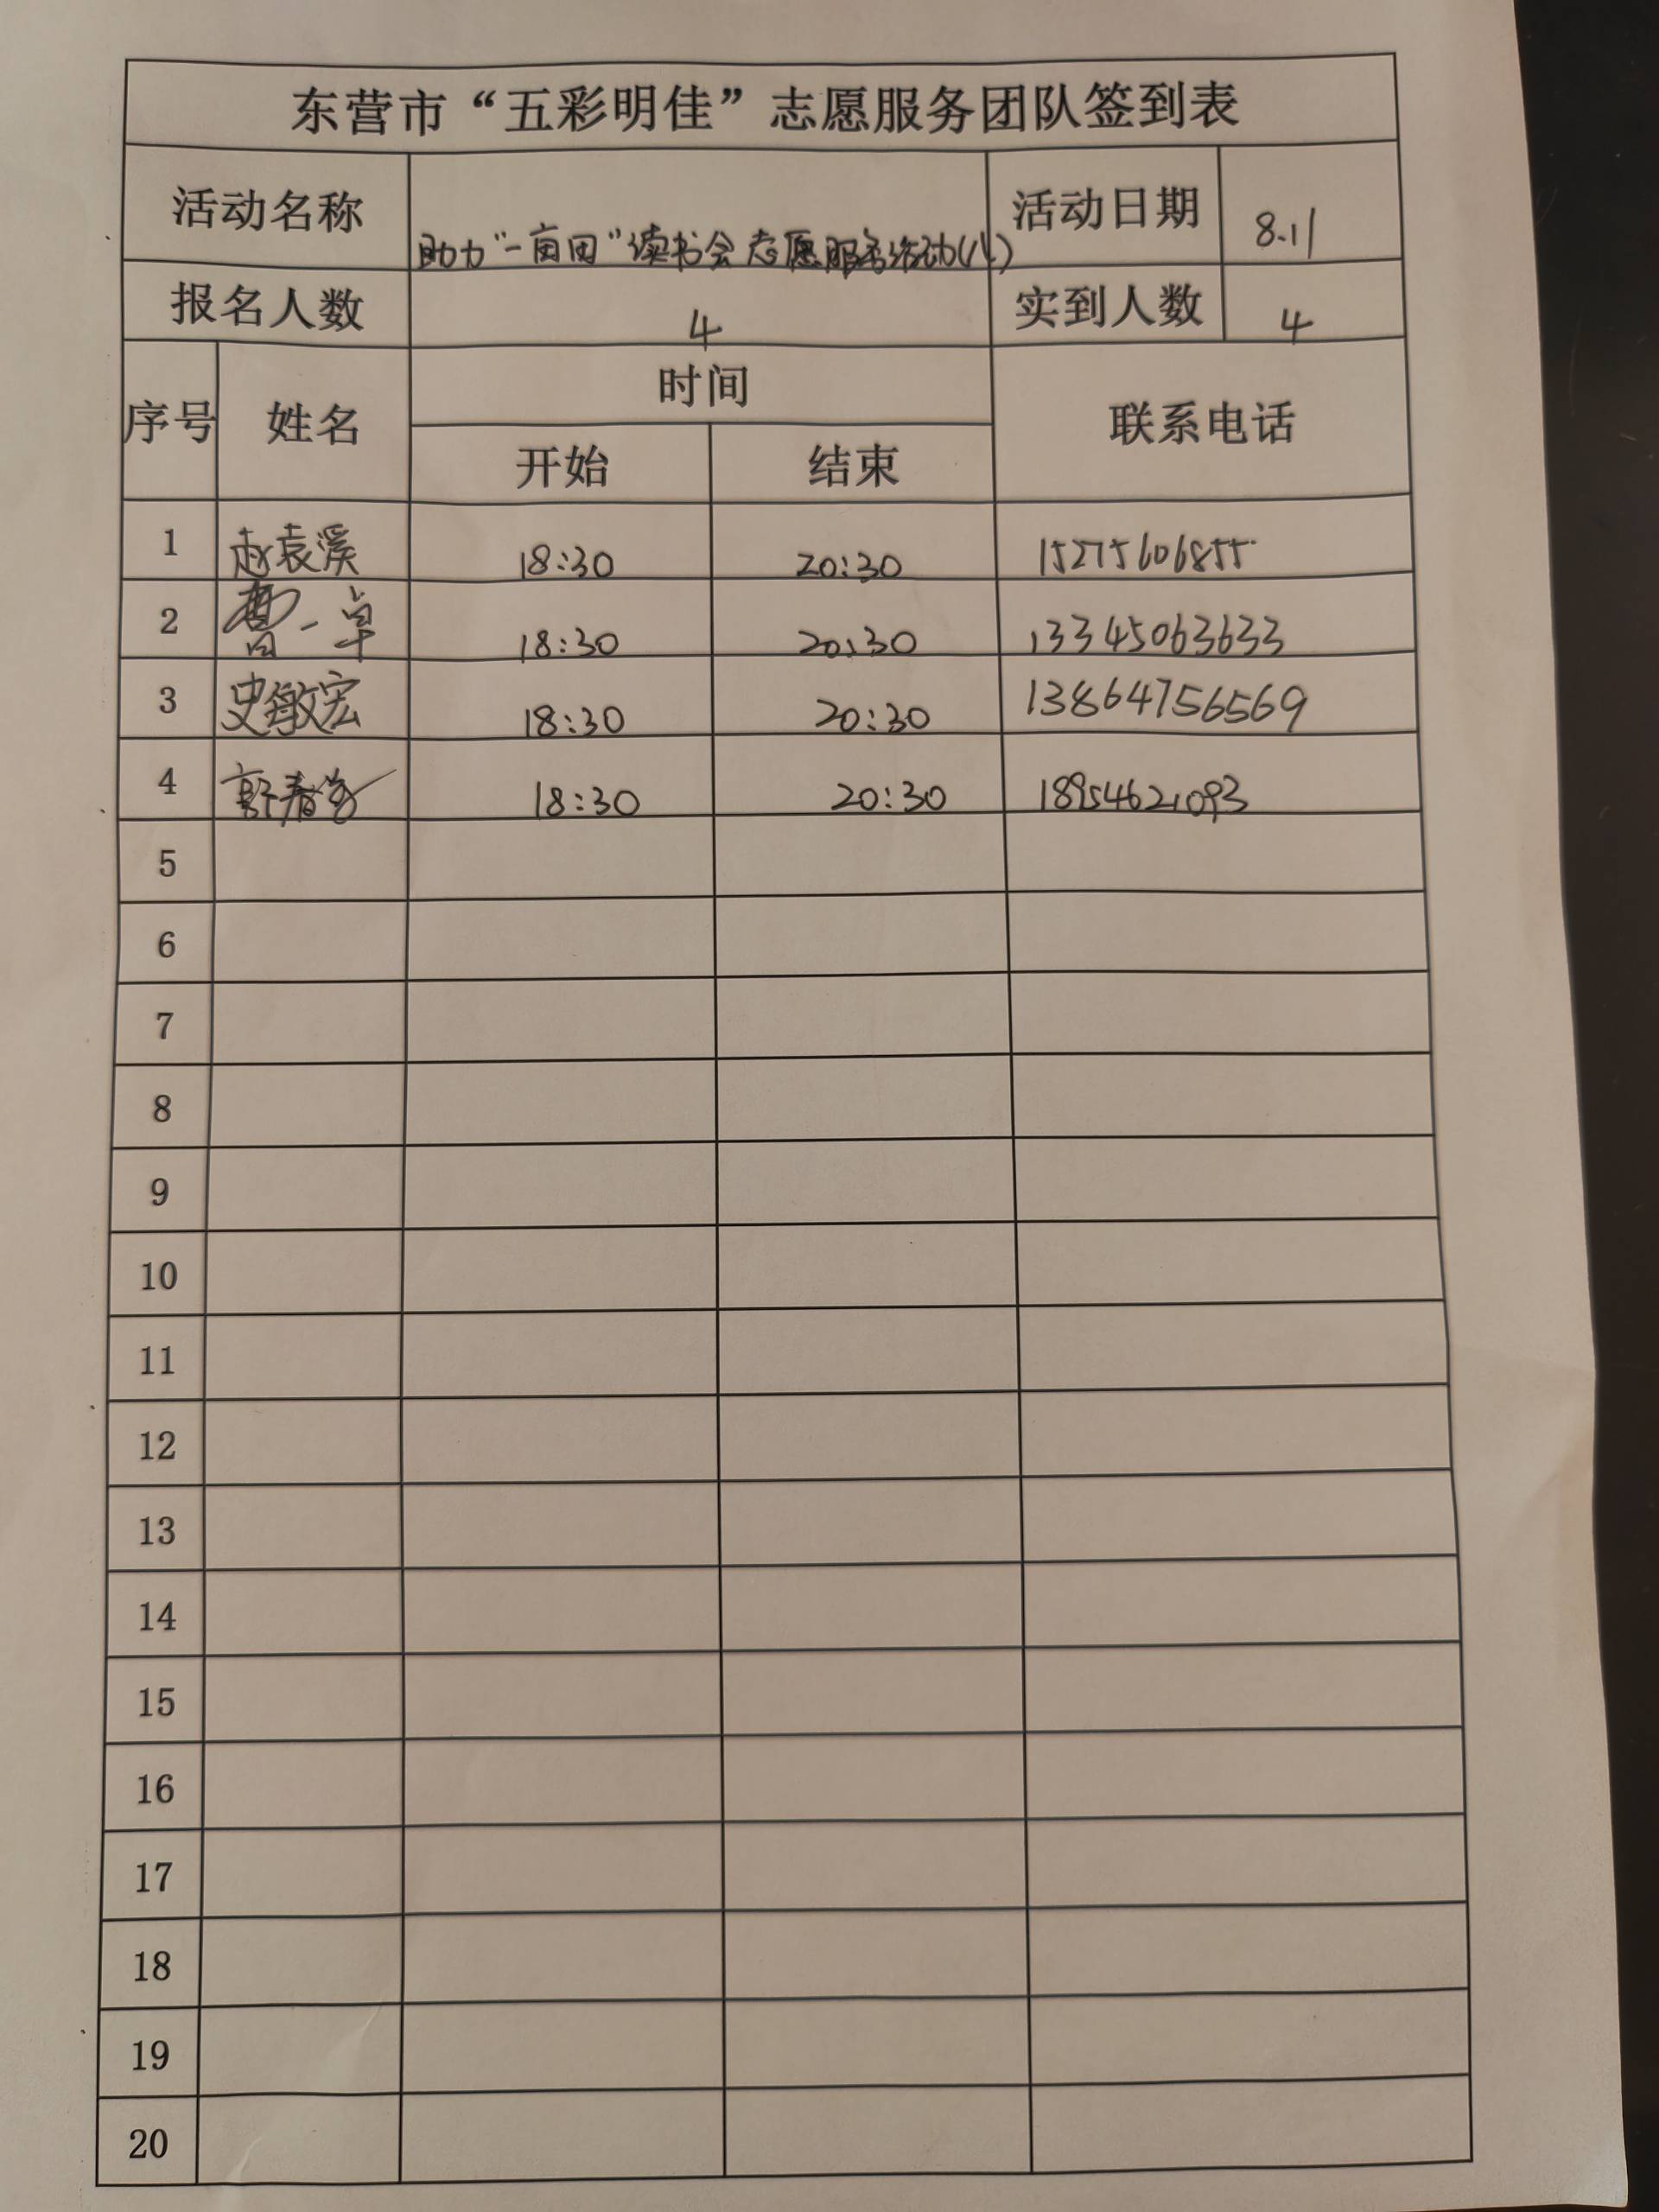 东营市“五彩明佳”志愿服务团队签到表
活动名称 助力“一亩田”读书会志愿服务活动(八) 活动日期 8.11
报名人数 4 实到人数 4
序号 姓名 时间 联系电话
开始 结束
1 赵袁溪 18:30 20:30 15275606855
2 曹一卓 18:30 20:30 13345063633
3 史敏宏 18:30 20:30 13864756569
4 郭春 18:30 20:30 18954621093
5
6
7
8
9
10
11
12
13
14
15
16
17
18
19
20